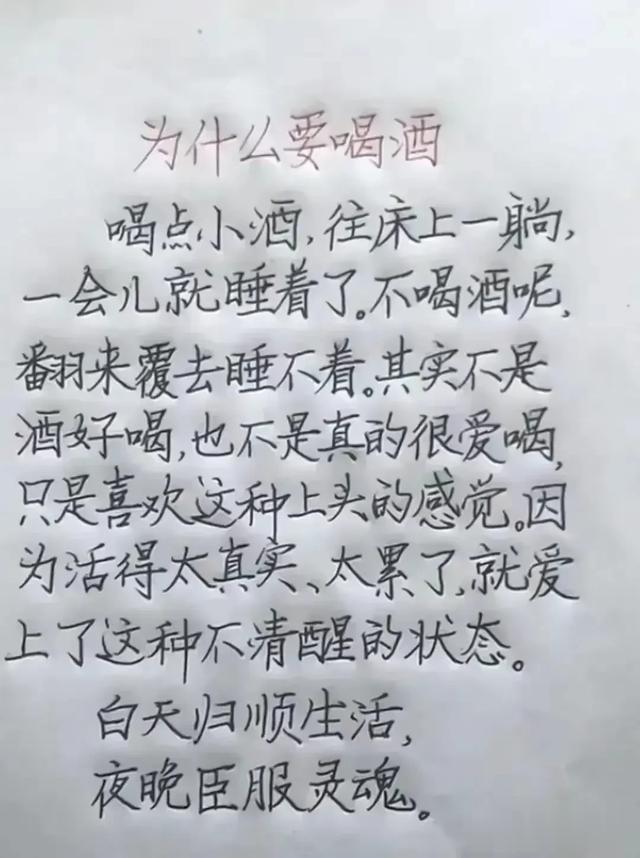 为什么要喝酒
喝点小酒,往床上一躺,
一会儿就睡着了。不喝酒呢,
翻来覆去睡不着。其实不是
酒好喝,也不是真的很爱喝,
只是喜欢这种上头的感觉。因
为活得太真实、太累了,就爱
上了这种不清醒的状态。
白天归顺生活,
夜晚臣服灵魂。